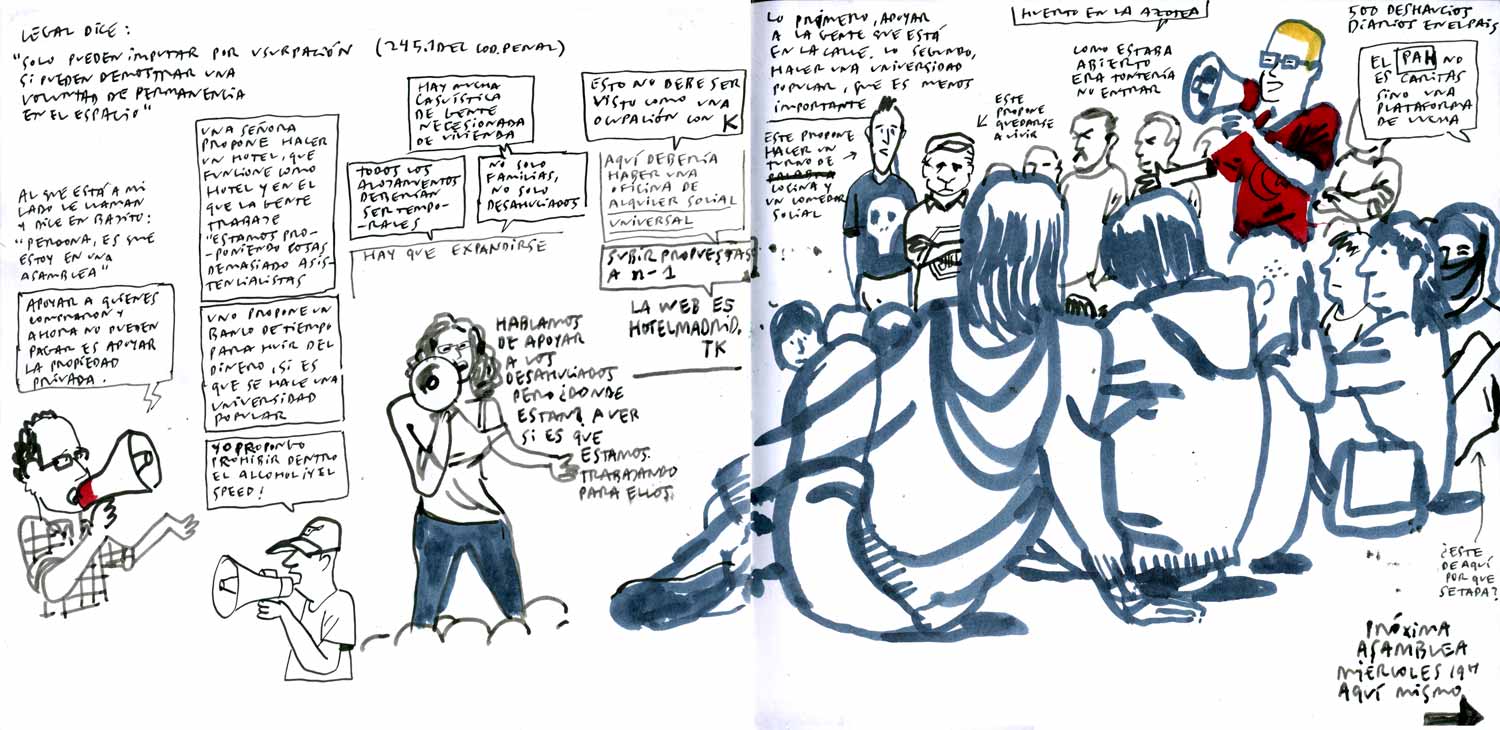 LEGAL DICE:
"SOLO PUEDEN IMPUTAR POR USURPACIÓN (245.1 DEL COD. PENAL)
SI PUEDEN DEMOSTRAR UNA
VOLUNTAD DE PERMANENCIA
EN EL ESPACIO"
AL QUE ESTÁ A MI
LADO LE LLAMAN
Y DICE EN BAJITO:
"PERDONA, ES QUE
ESTOY EN UNA
ASAMBLEA"
APOYAR A QUIENES
COMPRARON Y
AHORA NO PUEDEN
PAGAR ES APOYAR
LA PROPIEDAD
PRIVADA.
UNA SEÑORA
PROPONE HACER
UN HOTEL, QUE
FUNCIONE COMO
HOTEL Y EN EL
QUE LA GENTE
TRABAJE
"ESTAMOS PRO-
-PONIENDO COSAS
DEMASIADO ASIS-
TENCIALISTAS
UNO PROPONE UN
BANCO DE TIEMPO
PARA HUIR DEL
DINERO, SI ES
QUE SE HACE UNA
UNIVERSIDAD
POPULAR
YO PROPONGO
PROHIBIR DENTRO
EL ALCOHOL ¡Y EL
SPEED!
HAY MUCHA
CASUÍSTICA
DE GENTE
NECESIONADA
DE VIVIENDA
TODOS LOS
ALOJAMIENTOS
DEBERÍAN
SER TEMPO-
-RALES
NO SOLO
FAMILIAS,
NO SOLO
DESAHUCIADOS
HAY QUE EXPANDIRSE
ESTO NO DEBE SER
VISTO COMO UNA
OCUPACIÓN CON K
AQUÍ DEBERÍA
HABER UNA
OFICINA DE
ALQUILER SOCIAL
UNIVERSAL
SUBIR PROPUESTAS
A n-1
LA WEB ES
HOTELMADRID.
TK
HABLAMOS
DE APOYAR
A LOS
DESAHUCIADOS
PERO ¿DONDE
ESTAN? A VER
SI ES QUE
ESTAMOS
TRABAJANDO
PARA ELLOS.
LO PRIMERO, APOYAR
A LA GENTE QUE ESTÁ
EN LA CALLE. LO SEGUNDO,
HACER UNA UNIVERSIDAD
POPULAR, QUE ES MENOS
IMPORTANTE
ESTE PROPONE
HACER UN
TURNO DE
PALABRA
COCINA Y
UN COMEDOR
SOCIAL
HUERTO EN LA AZOTEA
ESTE
PROPONE
QUEDARSE
A VIVIR
COMO ESTABA
ABIERTO
ERA TONTERÍA
NO ENTRAR
500 DESHAUCIOS
DIARIOS EN EL PAIS
EL PAH NO
ES CARITAS
SINO UNA
PLATAFORMA
DE LUCHA
¿ESTE
DE AQUÍ
POR QUE
SE TAPA?
PRÓXIMA
ASAMBLEA
MIERCOLES 19H
AQUÍ MISMO